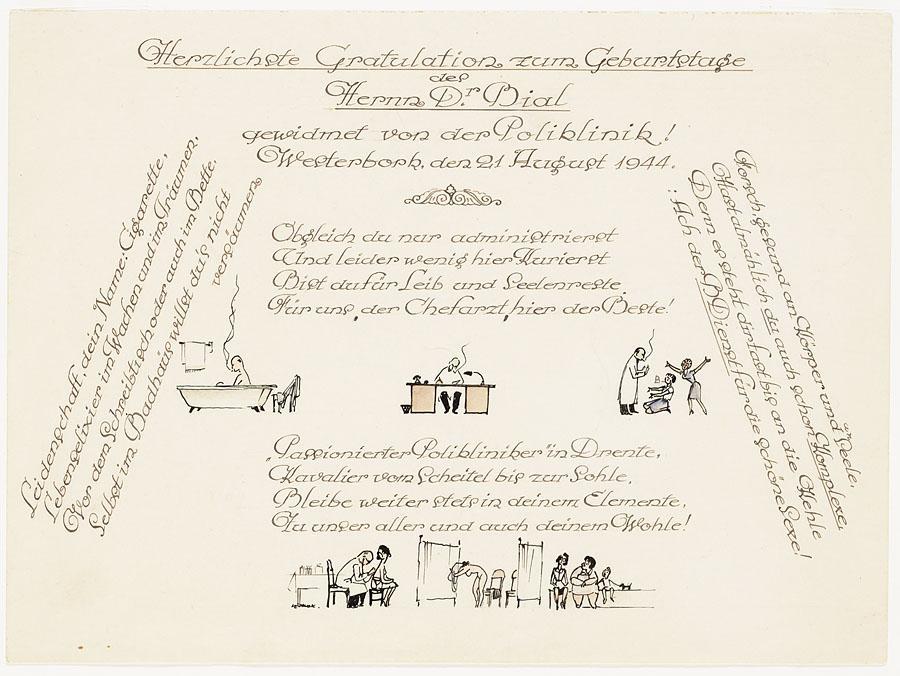 Herzlichste Gratulation zum Geburtstage
des
Herrn Dr Bial
gewidmet von der Poliklinik!
Westerbork, den 21 August 1944.
Leidenschaft, dein Name: Cigarette,
Lebenselixier im Wachen und im Träumen.
Vor dem Schreibtisch oder auch im Bette,
Selbst im Badhaus willst du's nicht
versäumen
Obgleich du nur administrierst
Und leider wenig hier kurierst
Bist du für Leib und Seelenreste
Für uns „der Chefarzt„ hier der Beste!
Forsch, gesund an Körper und Seele,
Hast almählich du auch schon Komplexe,
Denn es steht dir fast bis an die Kehle
: Ach der B Dienst für die schöne Sexe!
„Passionierter Polikliniker" in Drente,
Kavalier vom Scheitel bis zur Sohle,
Bleibe weiter stets in deinem Elemente,
Zu unser aller und auch deinem Wohle!